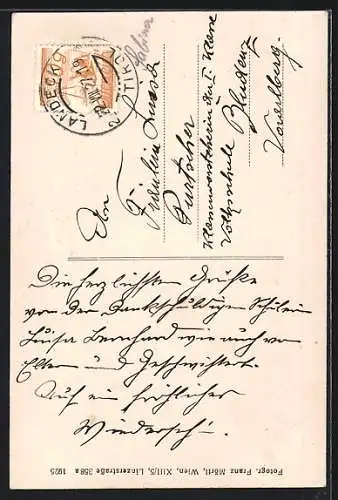 LANDECK
TIROL
Sabina
An
Fräulein Luise
Purtscher
Klassenvorsteherin der I. Klasse
Volksschule Bludenz
Vorarlberg.
Die herzlichsten Grüße
von der dankschuldigen Schülerin
Luisa Bernhard wie auch von
Eltern und Geschwistert.
Auf ein fröhliches
Wiederseh'n.
Fotogr. Franz Mörtl, Wien, XIII/5, Linzerstraße 358a 1925